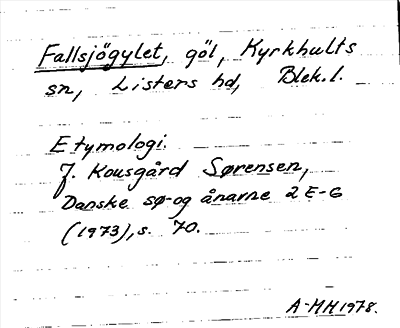 Fallsjögylet, göl, Kyrkhults
sn, Listers hd, Blek.l.
Etymologi.
J. Kousgård Sørensen,
Danske sø-og ånarne 2 E-G
(1973), s. 70.
A-MH 1978.